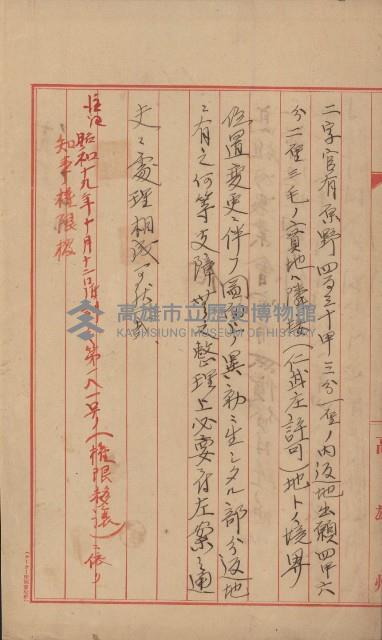 二字官有原野四百三十甲三分一厘ノ内返地出願四甲六
分二厘三毛ノ貸地ハ隣接(仁武庄許可)地トノ境界
位置変更ニ伴フ図面ニ異動ヲ生シタル部分返地
ニ有之何等支障無之整理上必要ニ付左案ノ通
夫々處理相成可然哉
昭和十九年十月十二日附 第八一号ノ(権限移譲)ニ依リ
知事権限
高雄州
高雄市立歷史博物館
KAOHSIUNG MUSEUM OF HISTORY